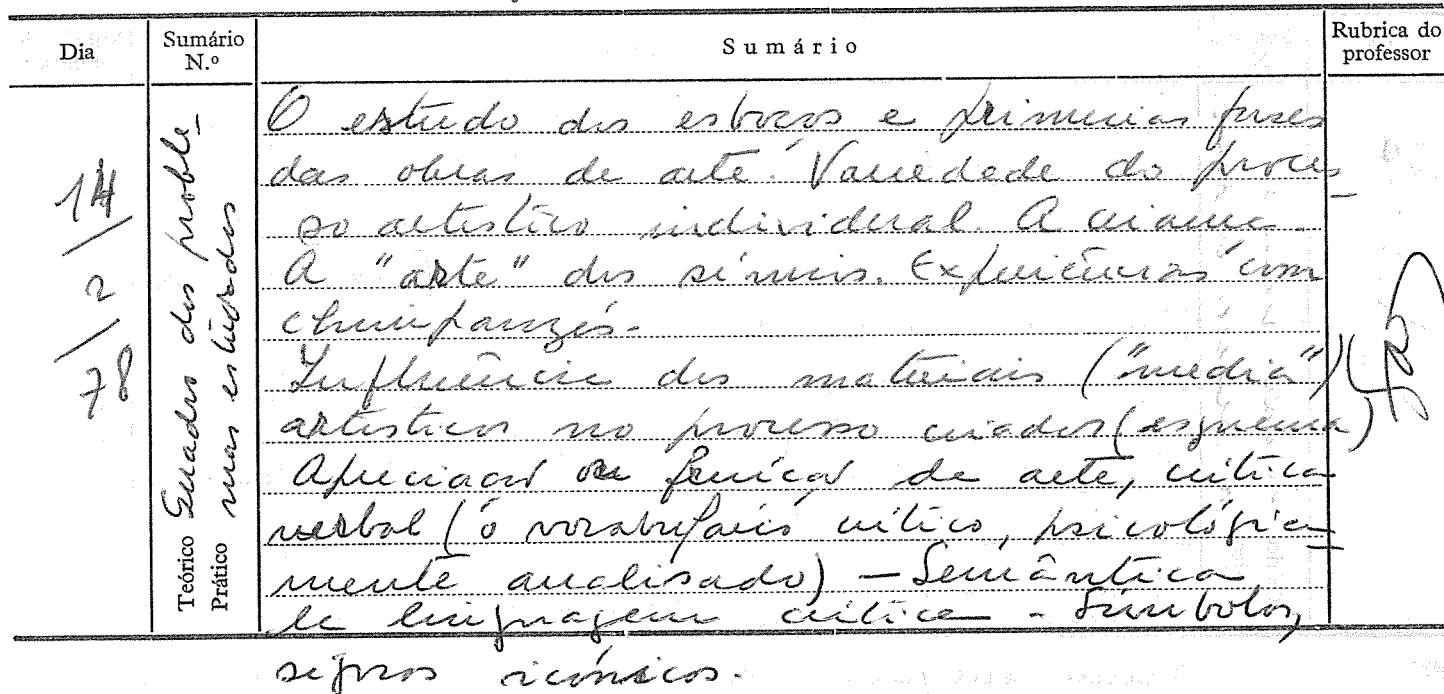 Dia
Sumário N.º
Sumário
Rubrica do professor
14/2/78
Teórico
Prático
Quadro dos proble-
mas estudados
O estudo dos esboços e primeiras fases
das obras de arte. Variedade do proces-
so artístico individual. A criança.
A "arte" dos símios. Experiências com
chimpanzés.
Influência dos materiais ("media")
artísticos no processo criador (esquema)
Apreciação ou fruição de arte, crítica
verbal (o vocabulário crítico, psicológica-
mente analisado) — Semântica
da linguagem crítica - Símbolos,
signos icónicos.